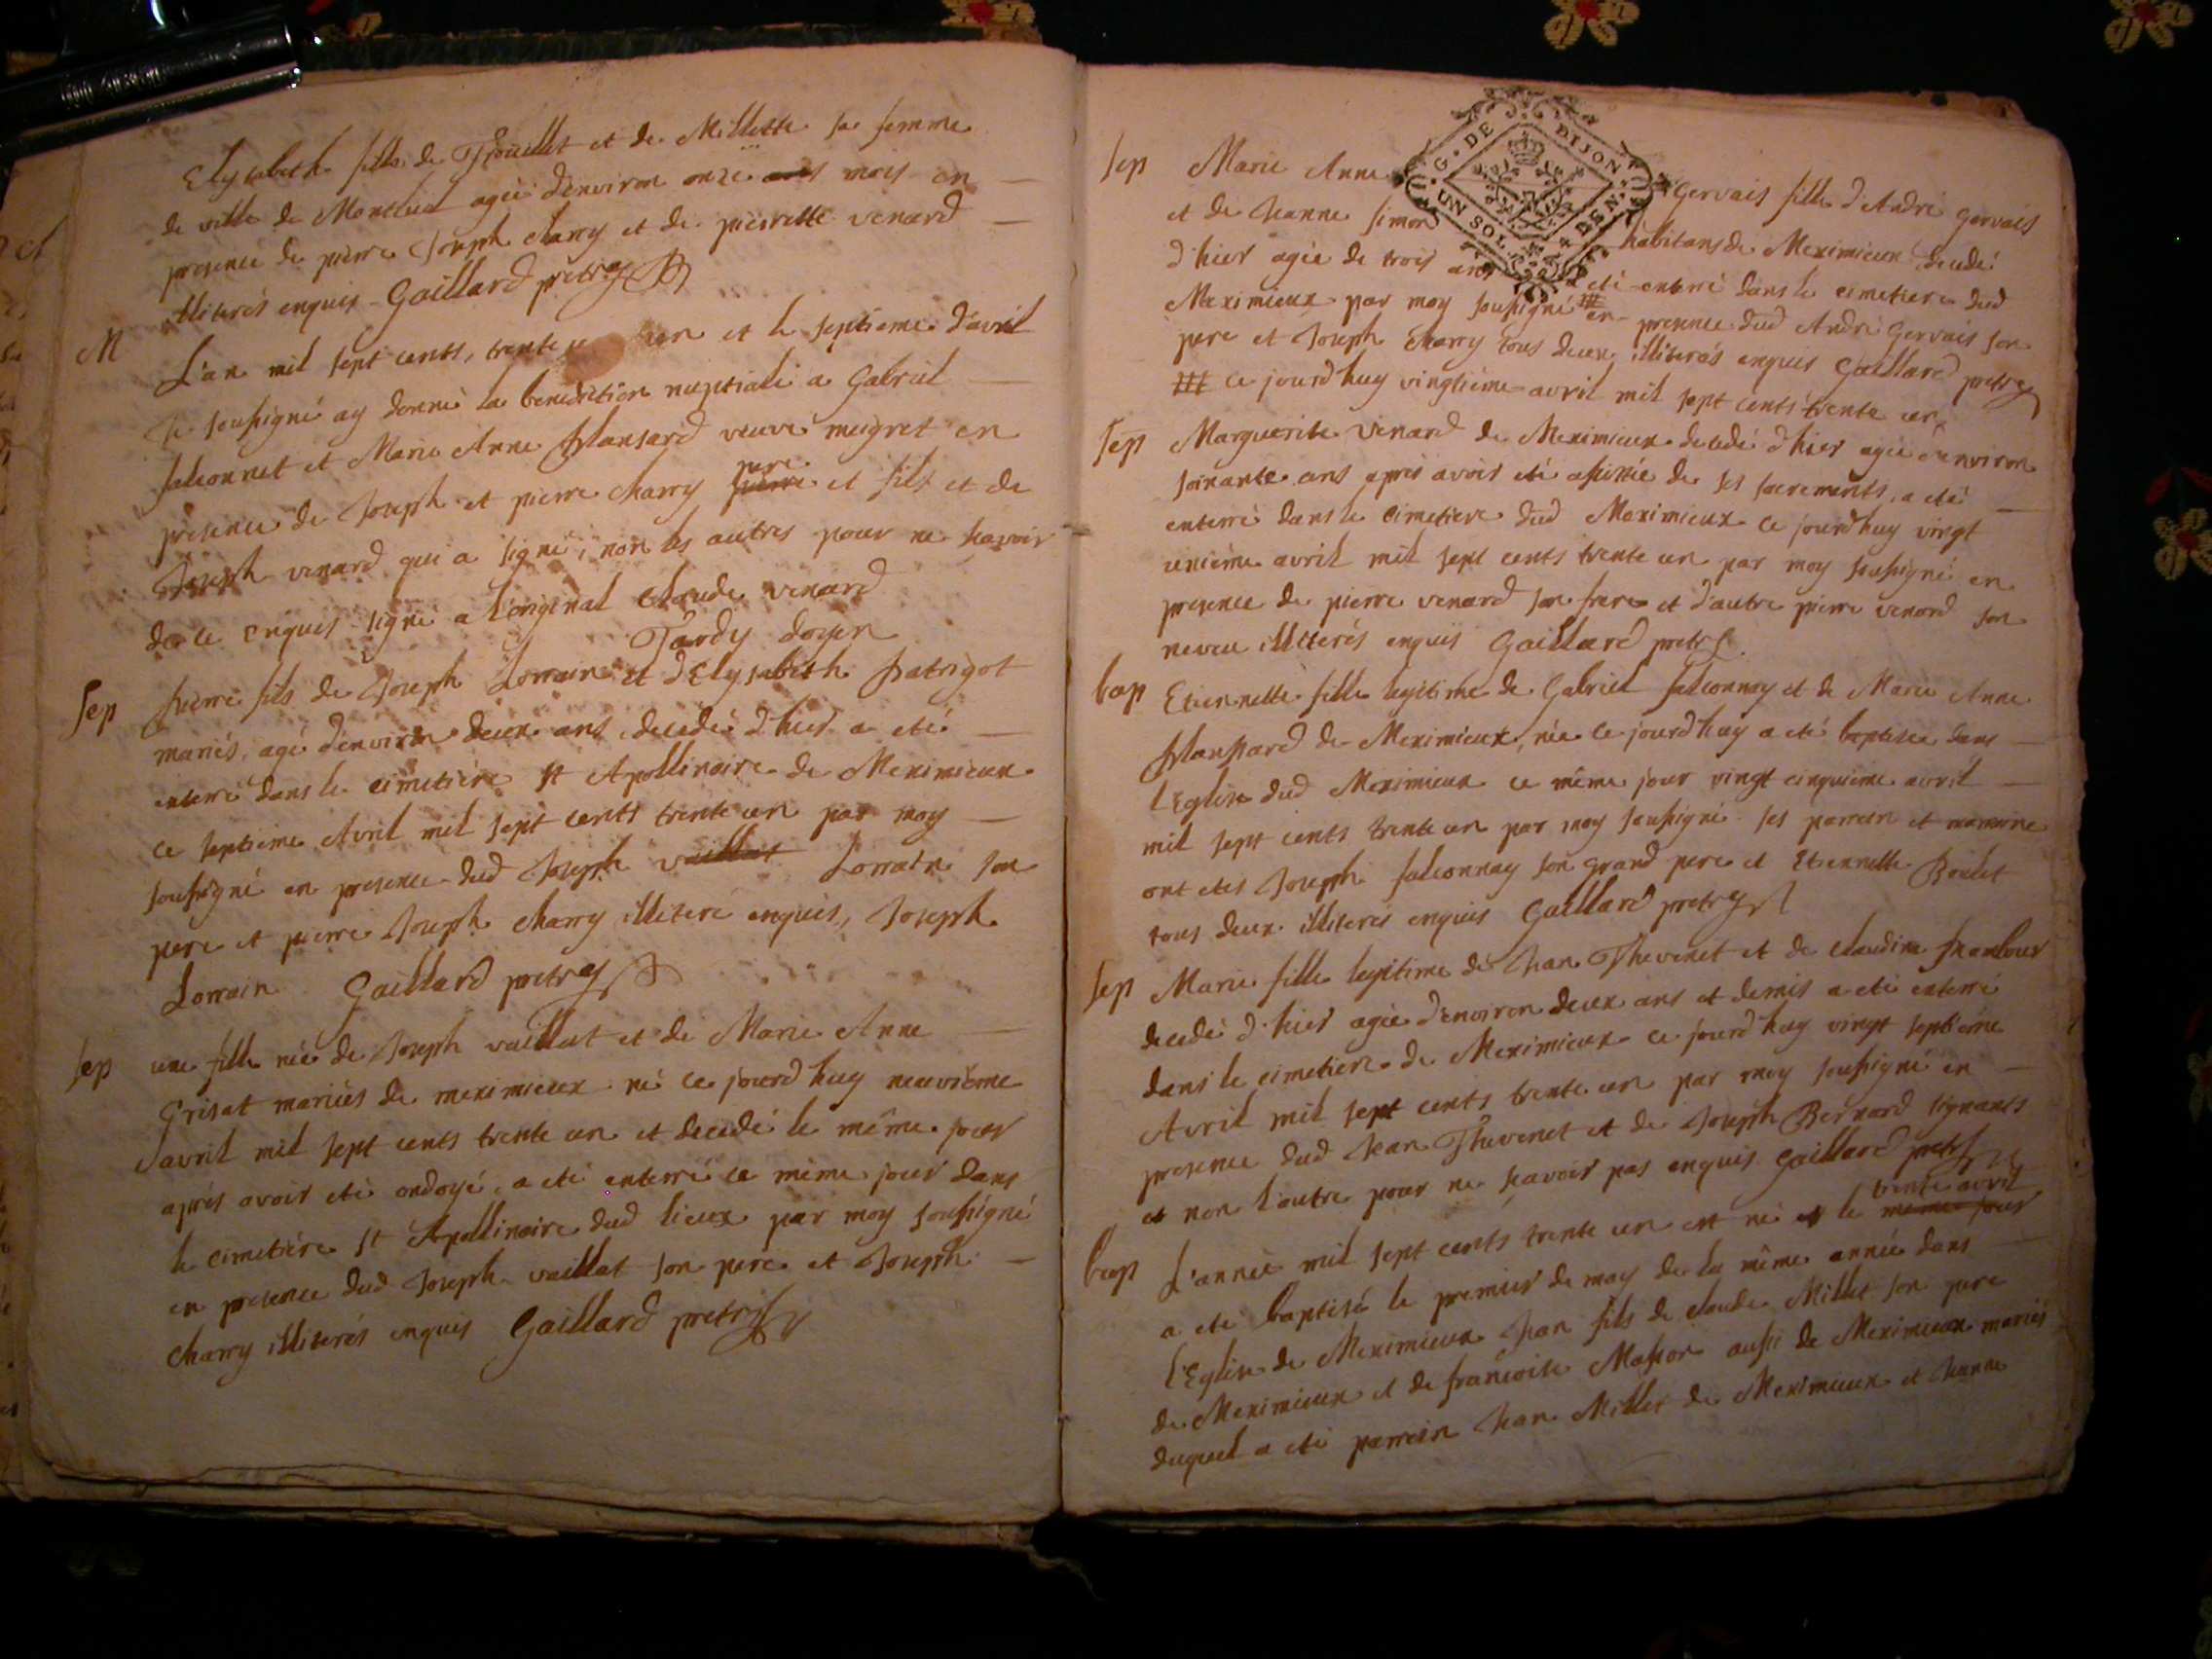 Elysabeth fille de Trouillet et de Millette sa femme
de ville de Montluel agée d'environ onze ans mois en
presence de pierre Joseph charry et de pierrette venard
illiterés enquis Gaillard pretre
M
L'an mil sept cents, trente un et le septieme d'avril
Je soussigné ay donné la benediction nuptiale a Gabriel
falconnet et Marie Anne Mansard veuve meigret en
presence de Joseph et pierre charry pierre pere et fils et de
Joseph venard qui a signé, non les autres pour ne scavoir
de ce enquis signé a l'original Claude venard
Tardy doyen
Sep pierre fils de Joseph Lorrain et d'Elysabeth patrigot
mariés, agé d'environ deux ans decedé d'hier a eté
enterré dans le cimetiere st Apollinaire de Meximieux
ce septieme Avril mil sept cents trente un par moy
soussigné en presence dud Joseph vaillat Lorrain son
pere et pierre Joseph charry illiteré enquis, Joseph
Lorrain Gaillard pretre
Sep une fille née de Joseph vaillat et de Marie Anne
Grisat mariés de meximieux né ce jourd huy neuvieme
avril mil sept cents trente un et decedé le même jour
aprés avoir eté ondoyé, a eté enterré ce même jour dans
le cimetiere st Apollinaire dud lieux par moy soussigné
en presence dud Joseph vaillat son pere et Joseph
charry illiterés enquis Gaillard pretre
G. DE DIJON
UN SOL. 4 DEN.
Sep Marie Anne Gervais fille d'André gervais
et de Jeanne simon habitans de Meximieux decedé
d'hier agée de trois ans a eté enterré dans le cimetiere dud
Meximieux par moy soussigné en presence dud André Gervais son
pere et Joseph Charry tous deux illiterés enquis Gaillard pretre
ce jourd huy vingtieme avril mil sept cents trente un
Sep Marguerite venard de Meximieux decedé d'hier agée d'environ
soixante ans aprés avoir eté assistée de ses sacrements, a eté
enterré dans le cimetiere dud Meximieux ce jourdhuy vingt
unieme avril mil sept cents trente un par moy soussigné en
presence de pierre venard son frere et d'autre pierre venard son
neveu illiterés enquis Gaillard pretre
bap Etiennette fille legitime de Gabriel falconnay et de Marie Anne
Manssard de Meximieux, née ce jourdhuy a eté baptisée dans
l'Eglise dud Meximieux ce même jour vingt cinquieme avril
mil sept cents trente un par moy soussigné ses parrein et marreine
ont etes Joseph falconnay son grand pere et Etiennette Boulet
tous deux illiterés enquis Gaillard pretre
Sep Marie fille legitime de Jean Thevenet et de claudine
decedé d'hier agée d'environ deux ans et demis a eté enterré
dans le cimetiere de Meximieux ce jourd huy vingt septieme
Avril mil sept cents trente un par moy soussigné en
presence dud Jean Thevenet et de Joseph Bernard signants
et non l'autre pour ne scavoir pas enquis Gaillard pretre
bap L'année mil sept cents trente un est né le même jour trente avril
a eté baptisé le premier de may de la même année dans
l'Eglise de Meximieux Jean fils de claude Millet son pere
de Meximieux et de francoise Masson aussi de Meximieux mariés
duquel a eté parrein Jean Millet de Meximieux et Jeanne